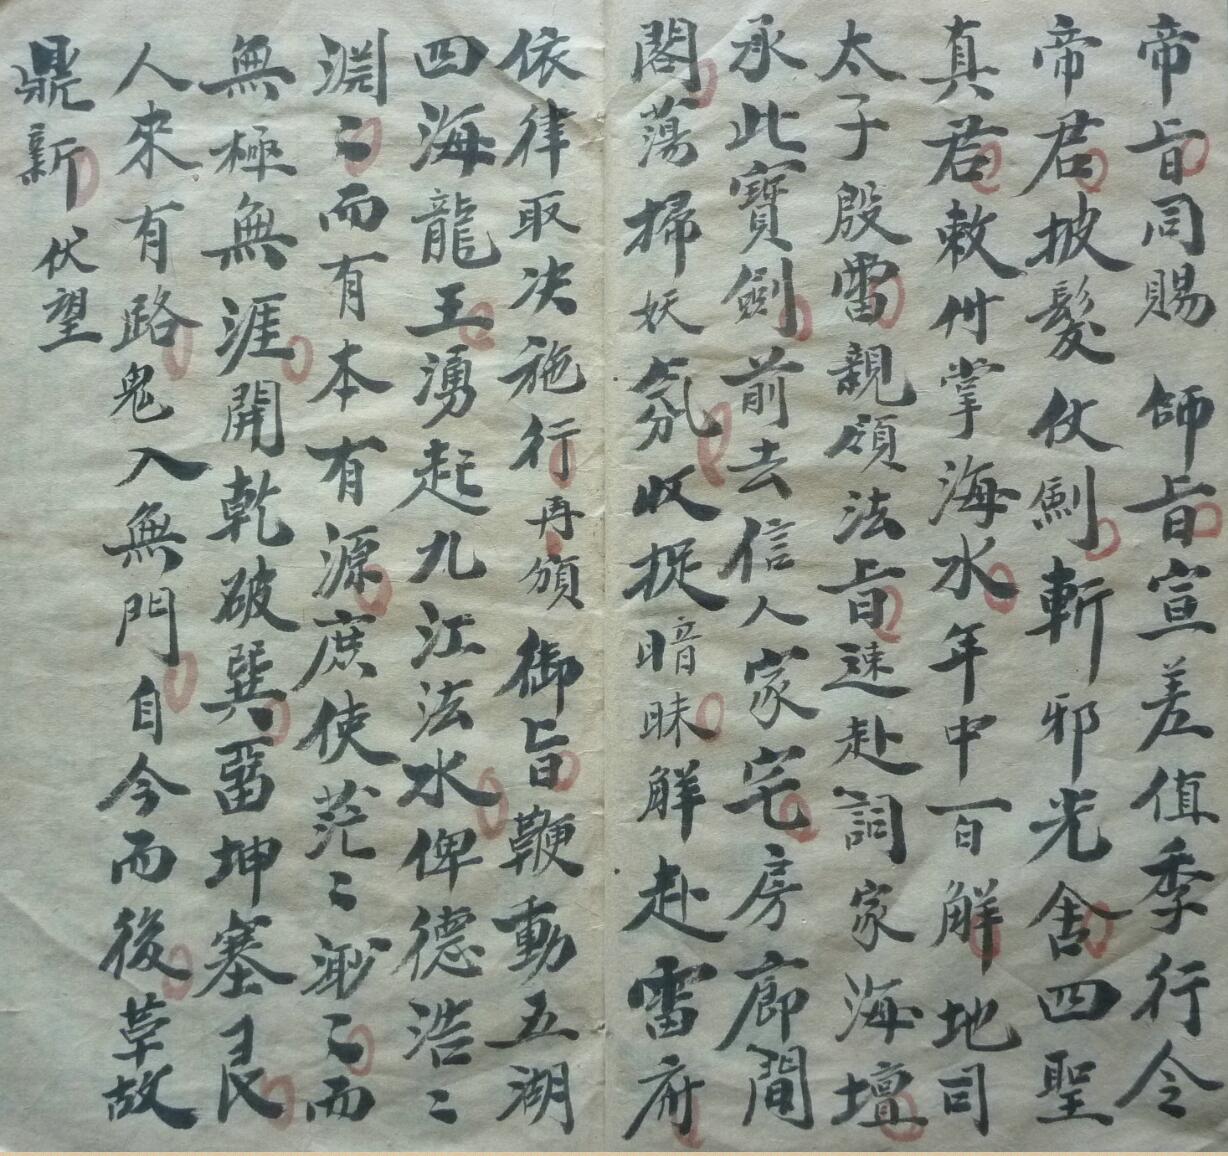 帝旨同賜師旨宣差值季行令
帝君披髮仗劍斬邪光舍四聖
真君敕付掌海水年中百解地司
太子殷雷親頒法旨速赴詞家海壇
承此寶劍前去信人家宅房廊間
閣蕩掃妖氛收捉暗昧解赴雷府
依律取决施行再頒御旨鞭動五湖
四海龍王湧起九江法水俾德浩〻
淵〻而有本有源庶使茫〻渺〻而
無極無涯開乾破巽畱坤塞艮
人來有路鬼入無門自今而後草故
鼎新伏望